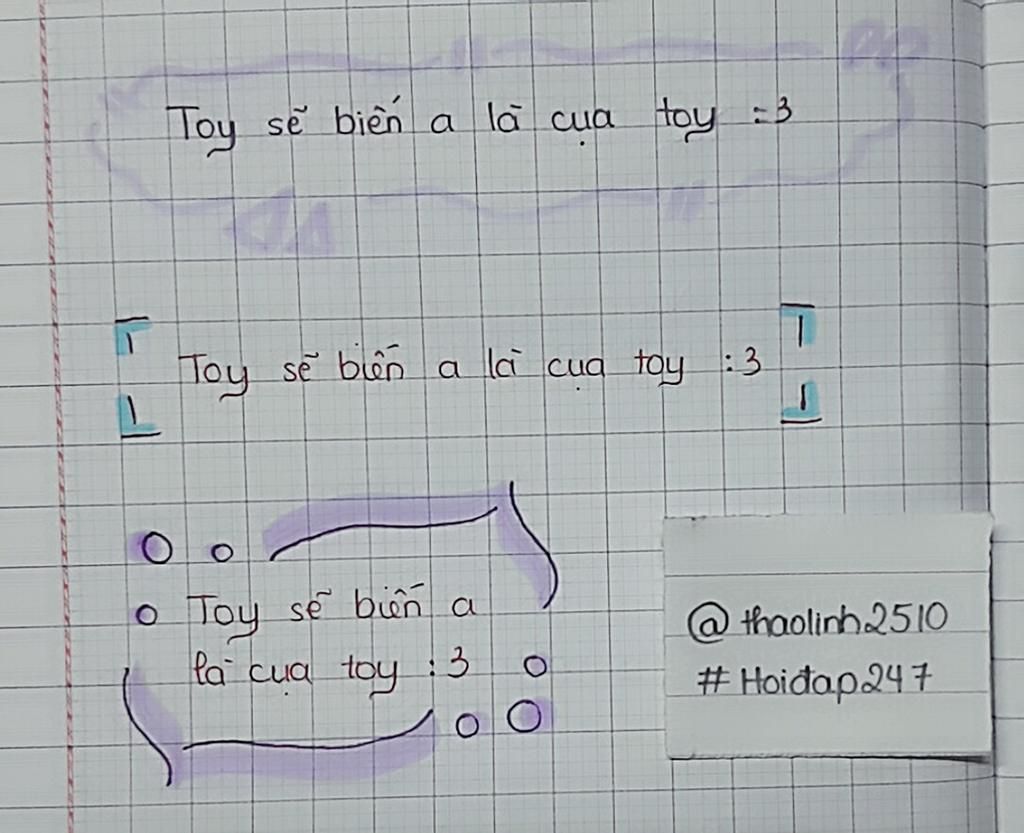 Toy sẽ biến a là cụa toy :3
Toy sẽ biến a là cụa toy :3
Toy sẽ biến a
là cụa toy :3
@thaolinh2510
# Hoidap247